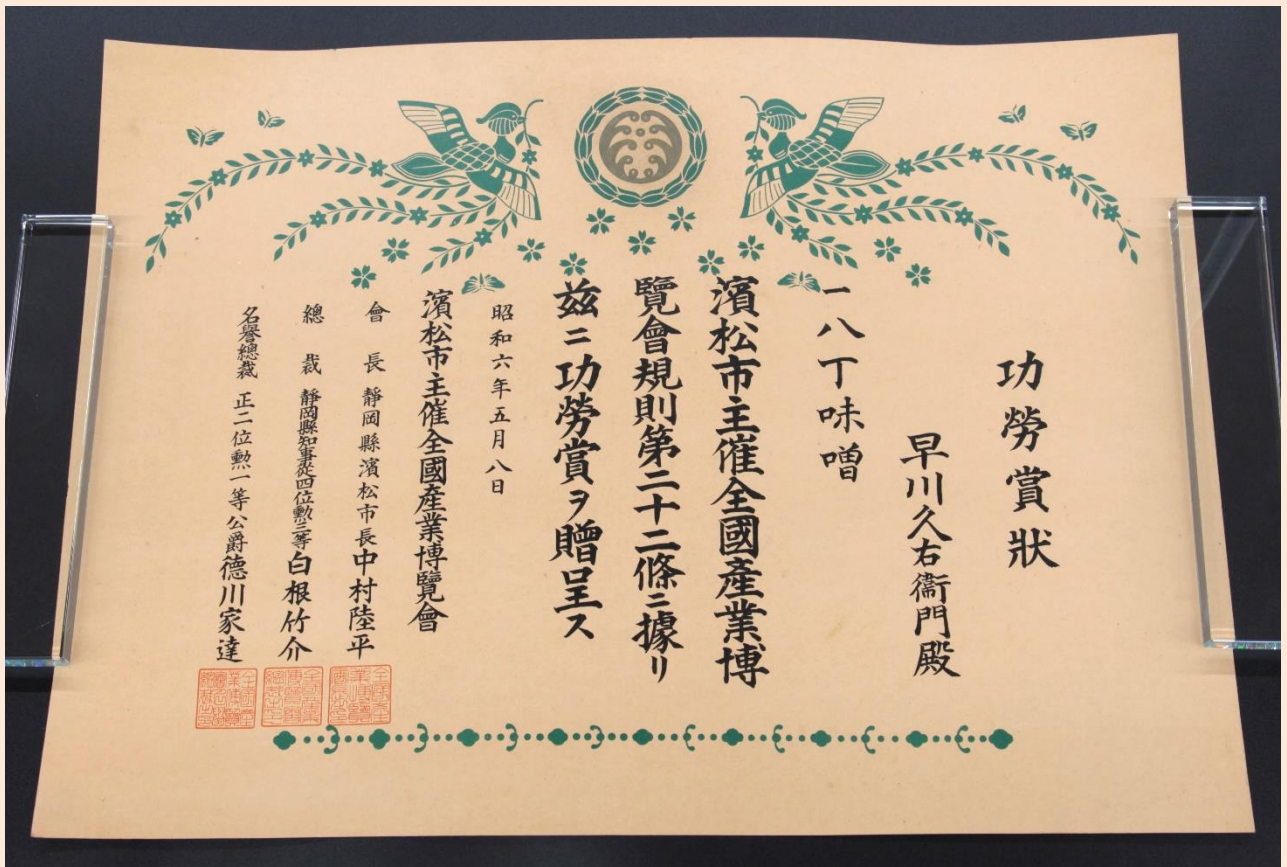 功勞賞狀
早川久右衞門殿
一八丁味噌
濱松市主催全國產業博
覽會規則第二十二條ニ據リ
茲ニ功勞賞ヲ贈呈ス
昭和六年五月八日
濱松市主催全國產業博覽會
會長 靜岡縣濱松市長 中村陸平
總裁 靜岡縣知事從四位勲三等 白根竹介
名譽總裁 正二位勲一等公爵 德川家達